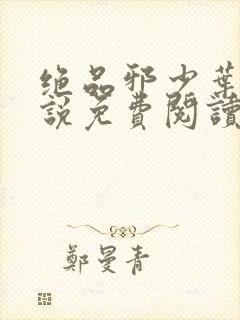 绝品邪少葉
說免費閱讀
鄭曼青